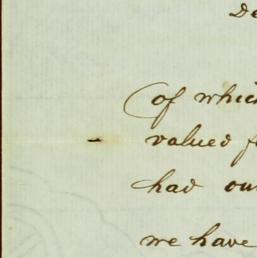 De
of which
valued f
had ou
we have